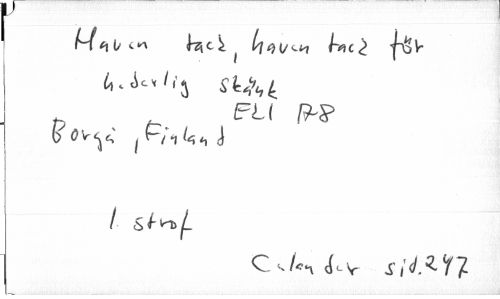 Haven tack, haven tack för
hederlig skänk
ELI 178
Borgå, Finland
1. strof
Calander sid. 247